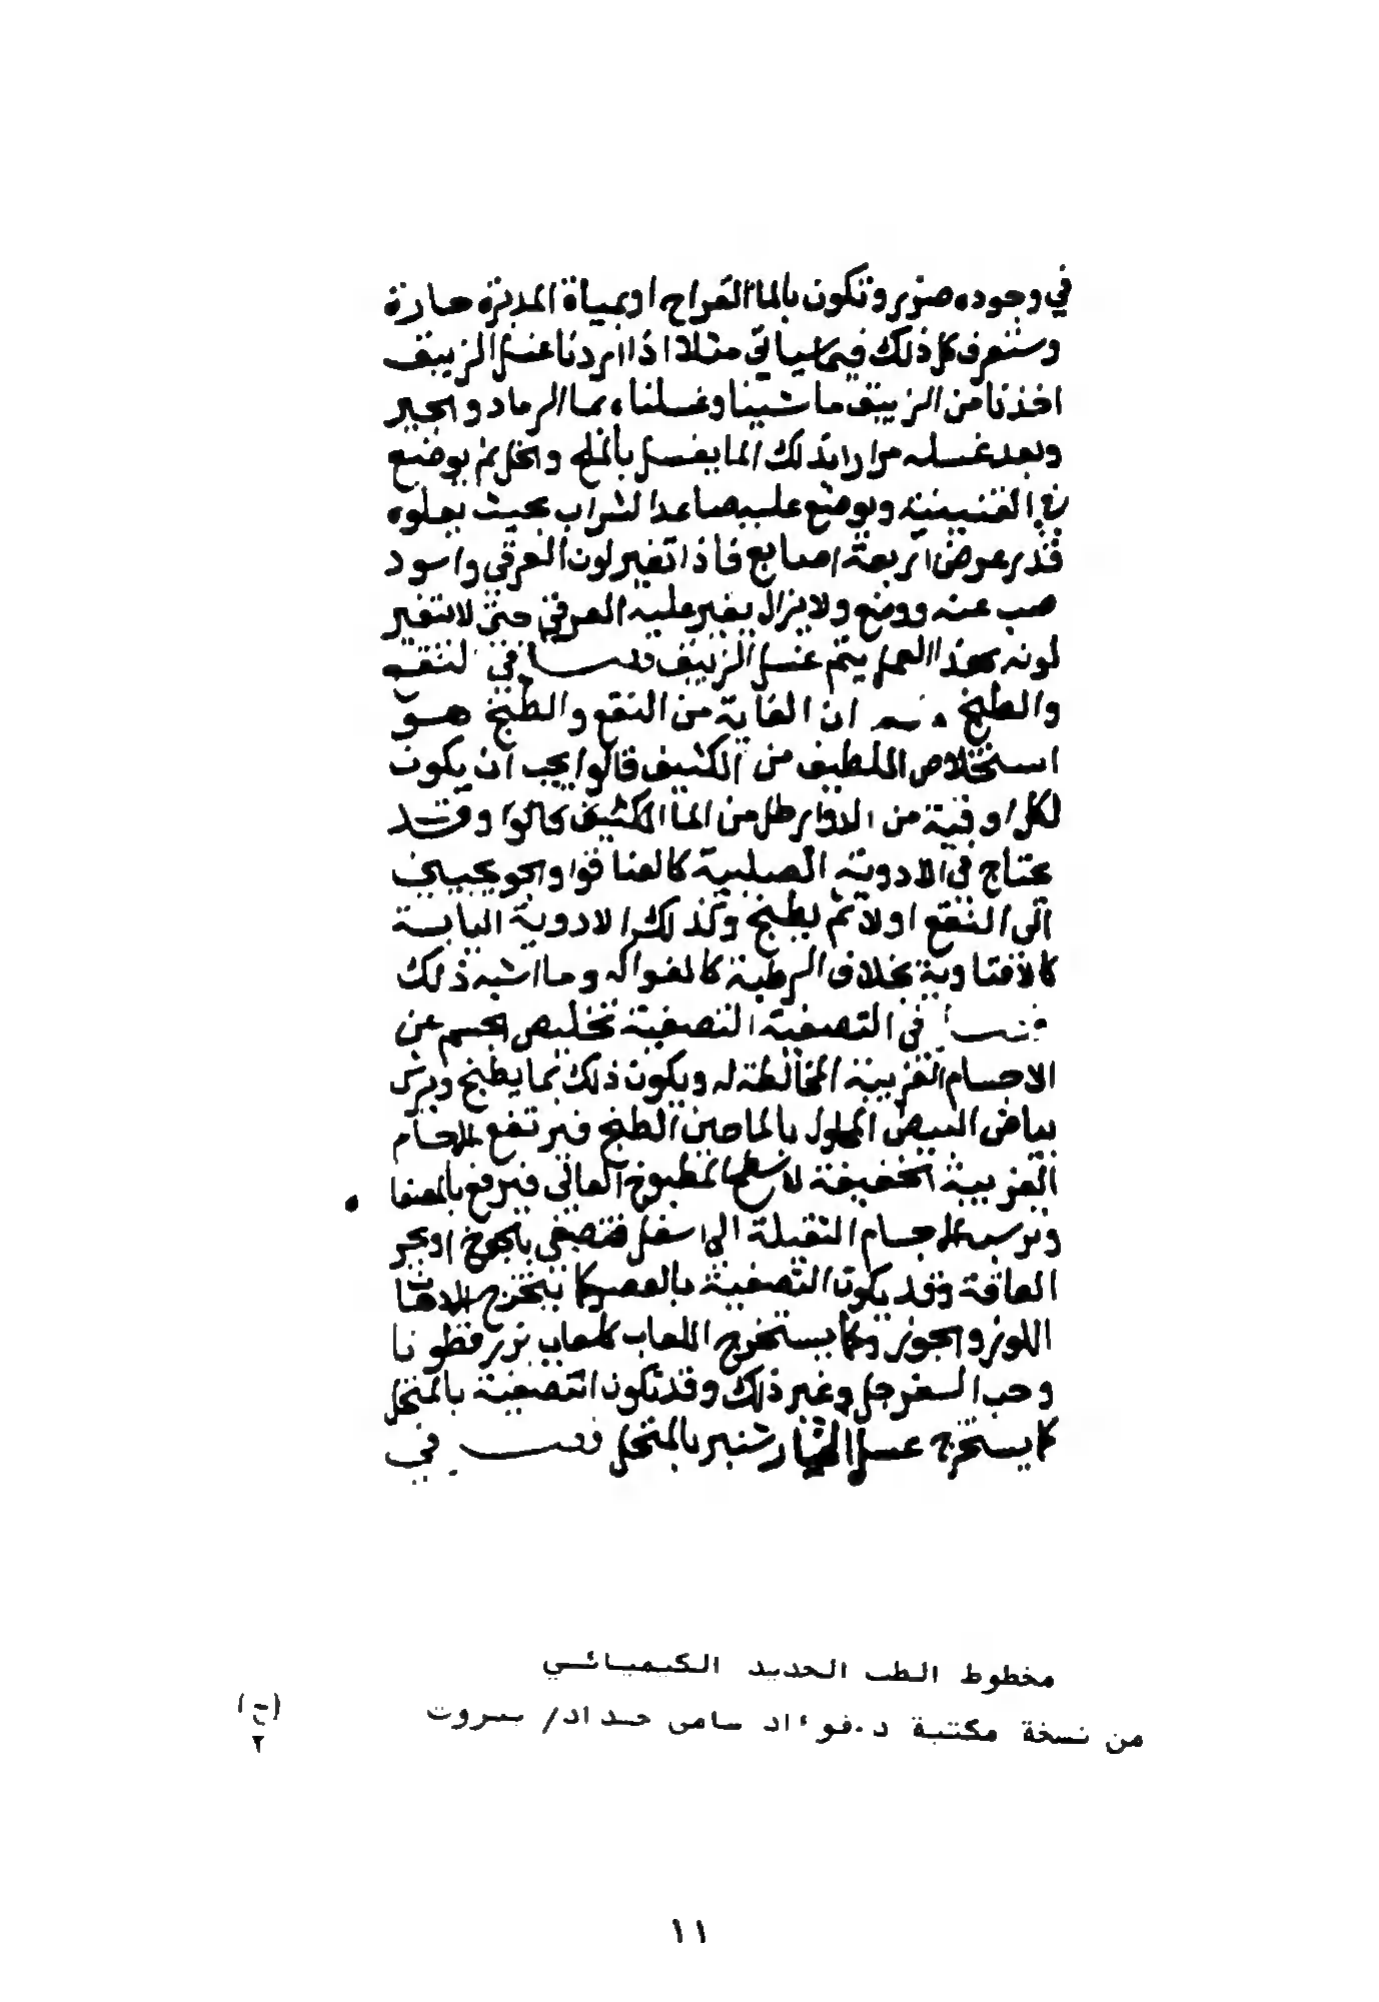 في وجوده ضرر وتكون بالماء القراح او بمياة المدبره حارة
وستعرف كل ذلك فيما سياتي مثلا اذا اردنا غسل الزيبق
اخذنا من الزيبق ما شينا وغسلناه بما الرماد والجير
وبعد غسله مرارا بذلك الما يغسل بالملح والخل ثم يوضع
في القنينية ويوضع عليه صاعد الشراب بحيث يعلوه
قدر عرض اربعة اصابع فاذا تغير لون العرقي واسود
صب عنه ووضع ولا يزال يغير عليه العرقي حتى لا يتغير
لونه بهذا العمل يتم غسل الزيبق فصل في النقع
والطبخ ان الغاية من النقع والطبخ هو
استخلاص اللطيف من الكثيف قالوا يجب ان يكون
لكل اوقية من الدوا رطل من الما الكثيف قالوا وقد
يحتاج في الادوية الصلبية كالعنا قوا والجو بجيني
الى النقع اولا ثم يطبخ وكذلك الادوية اليابسة
كالافتا وية بخلاف الرطبة كالفواكه وما اشبه ذلك
فصل في التصفية التصفية تخليص الجسم عن
الاجسام الغريبة المخالطة له ويكون ذلك بما يطبخ ويرش
بياض البيض المحلول بالما حين الطبخ فيرتفع الاجسام
الغريبة الخفيفة لا سطح المطبوخ العالي فيرفع بالمصفا
وترسب الاجسام الثقيلة الى اسفل فتصفى بالجوخ او بحر
العاقة وقد يكون التصفية بالعصر كما يتخرج الادهان
اللوز والجوز وكما يستخرج اللعاب كلعاب بزر قطونا
وحب السفرجل وغير ذلك وقد تكون التصفية بالمنخل
كما يستخرج عسل الخيار شنبر بالمنخل فصل في
مخطوط الطب الجديد الكيميائي
من نسخة مكتبة د.فوءاد سامي حداد/ بيروت
(ح)
٢
١١